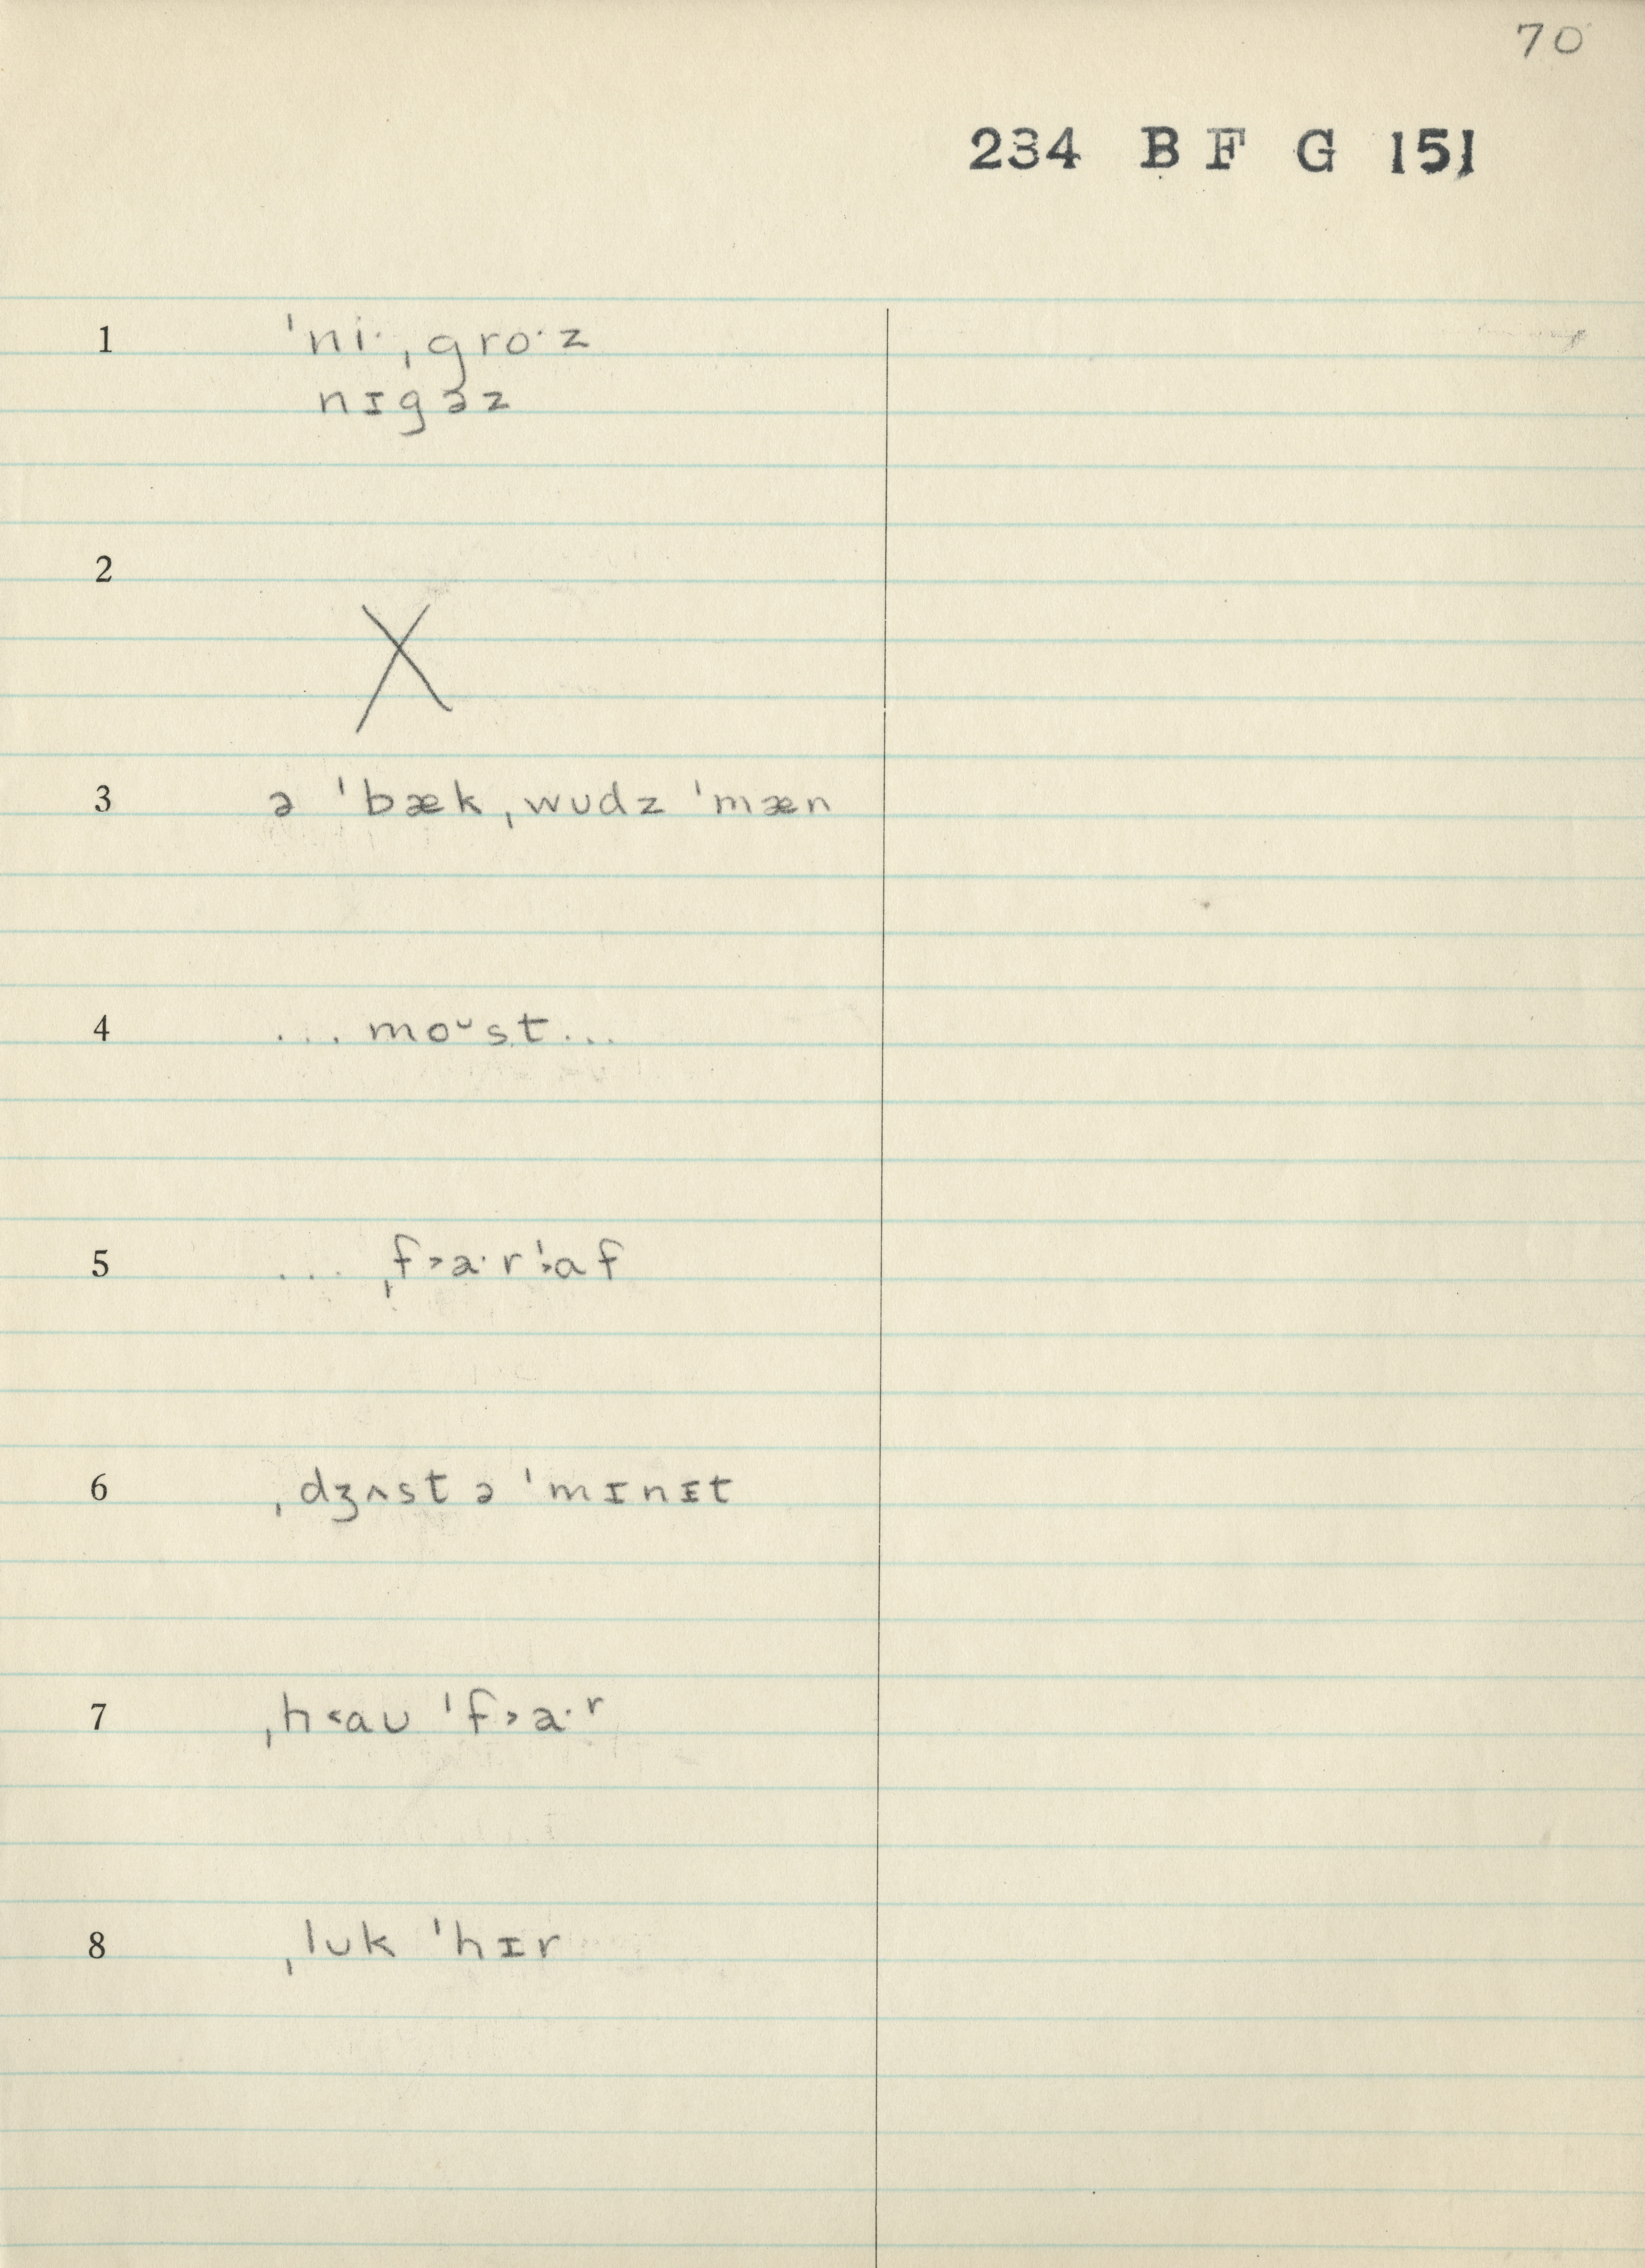 70
234 B F G 151
1 ˈniˑˌgroˑz
nɪgəz
2 X
3 ə ˈbækˌwudz ˈmæn
4 ... moᴗst ...
5 ... ˌf˃aˑrˈ˃af
6 ˌdʒʌst ə ˈmɪnɪ̵t
7 ˌh˂aʊ ˈf˃aˑʳ
8 ˌlʊk ˈhɪr